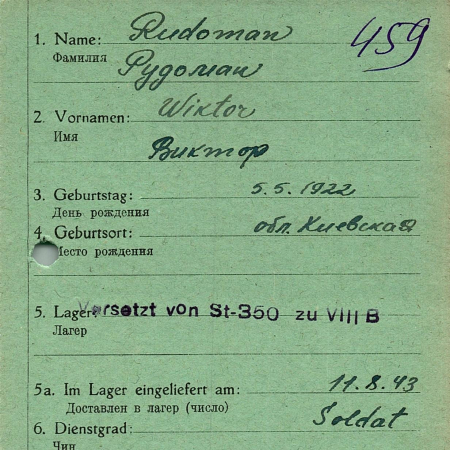 1. Name: Rudoman 459
Фамилия Рудоман
2. Vornamen: Wiktor
Имя
Виктор
3. Geburtstag: 5.5.1922
День рождения
4. Geburtsort: обл. Киевская
Место рождения
5. Lager: Versetzt von St-350 zu VIII B
Лагерь
5a. Im Lager eingeliefert am: 11.8.43
Доставлен в лагерь (число)
6. Dienstgrad: Soldat
Чин